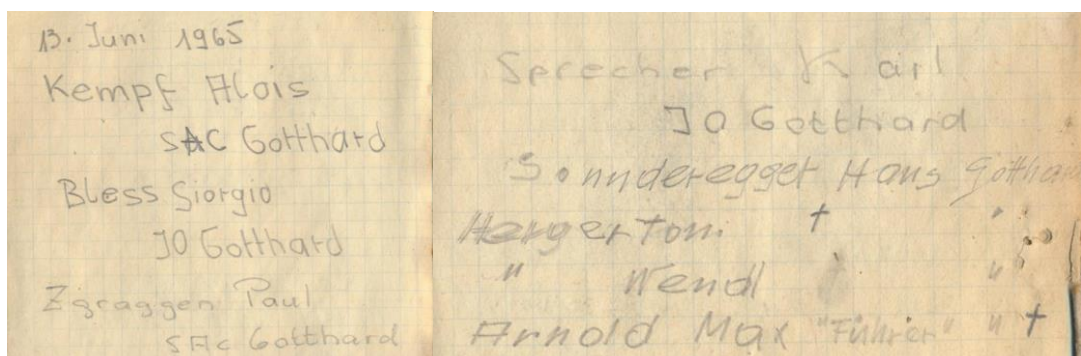 13. Juni 1965
Kempf Alois
SAC Gotthard
Bless Giorgio
JO Gotthard
Zgraggen Paul
SAC Gotthard
Sprecher Karl
JO Gotthard
Sonnderegger Hans Gotthard
Herger Toni † "
" Wendl "
Arnold Max "Führer" " †